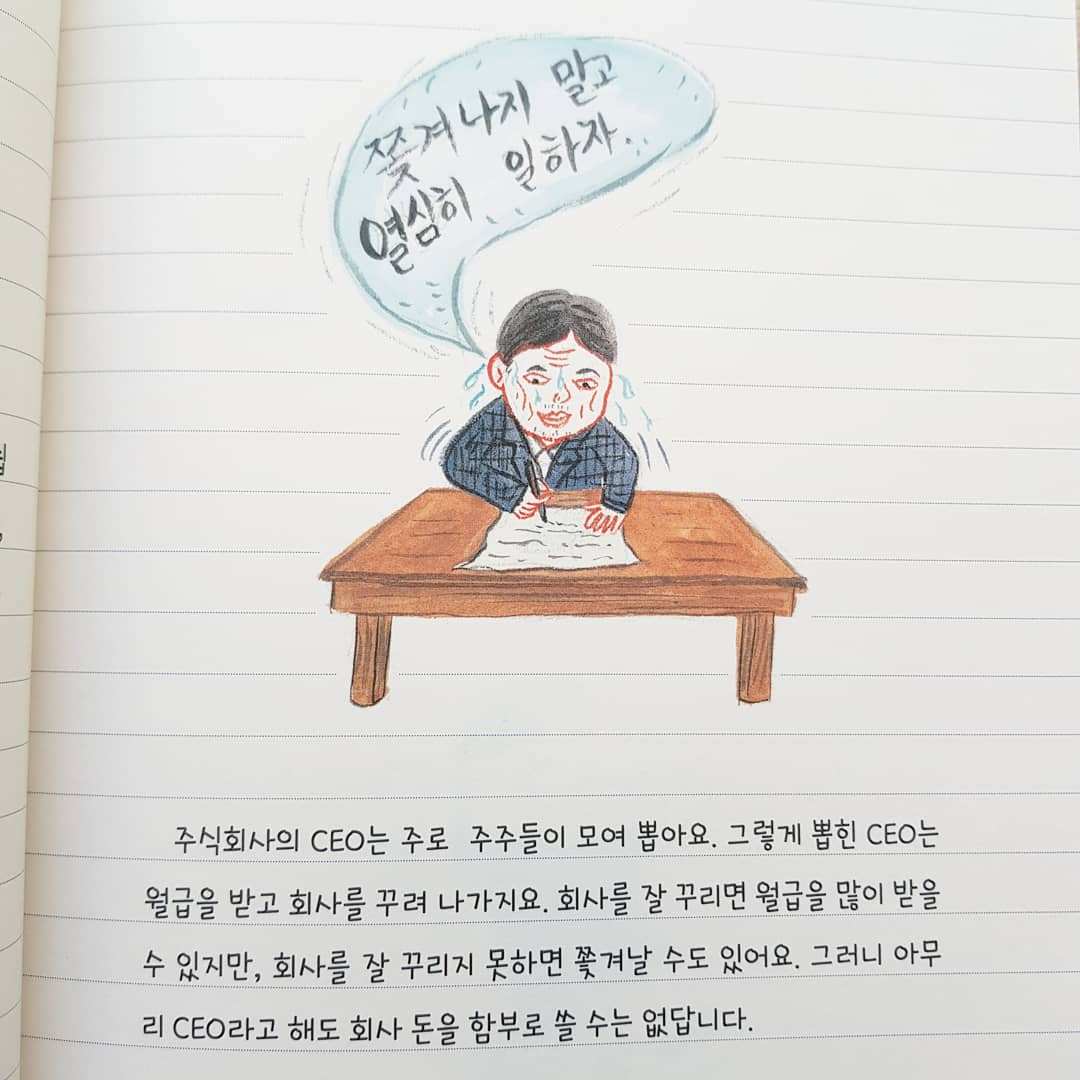 쫓겨나지 말고
열심히 일하자.
주식회사의 CEO는 주로 주주들이 모여 뽑아요. 그렇게 뽑힌 CEO는
월급을 받고 회사를 꾸려 나가지요. 회사를 잘 꾸리면 월급을 많이 받을
수 있지만, 회사를 잘 꾸리지 못하면 쫓겨날 수도 있어요. 그러니 아무
리 CEO라고 해도 회사 돈을 함부로 쓸 수는 없답니다.